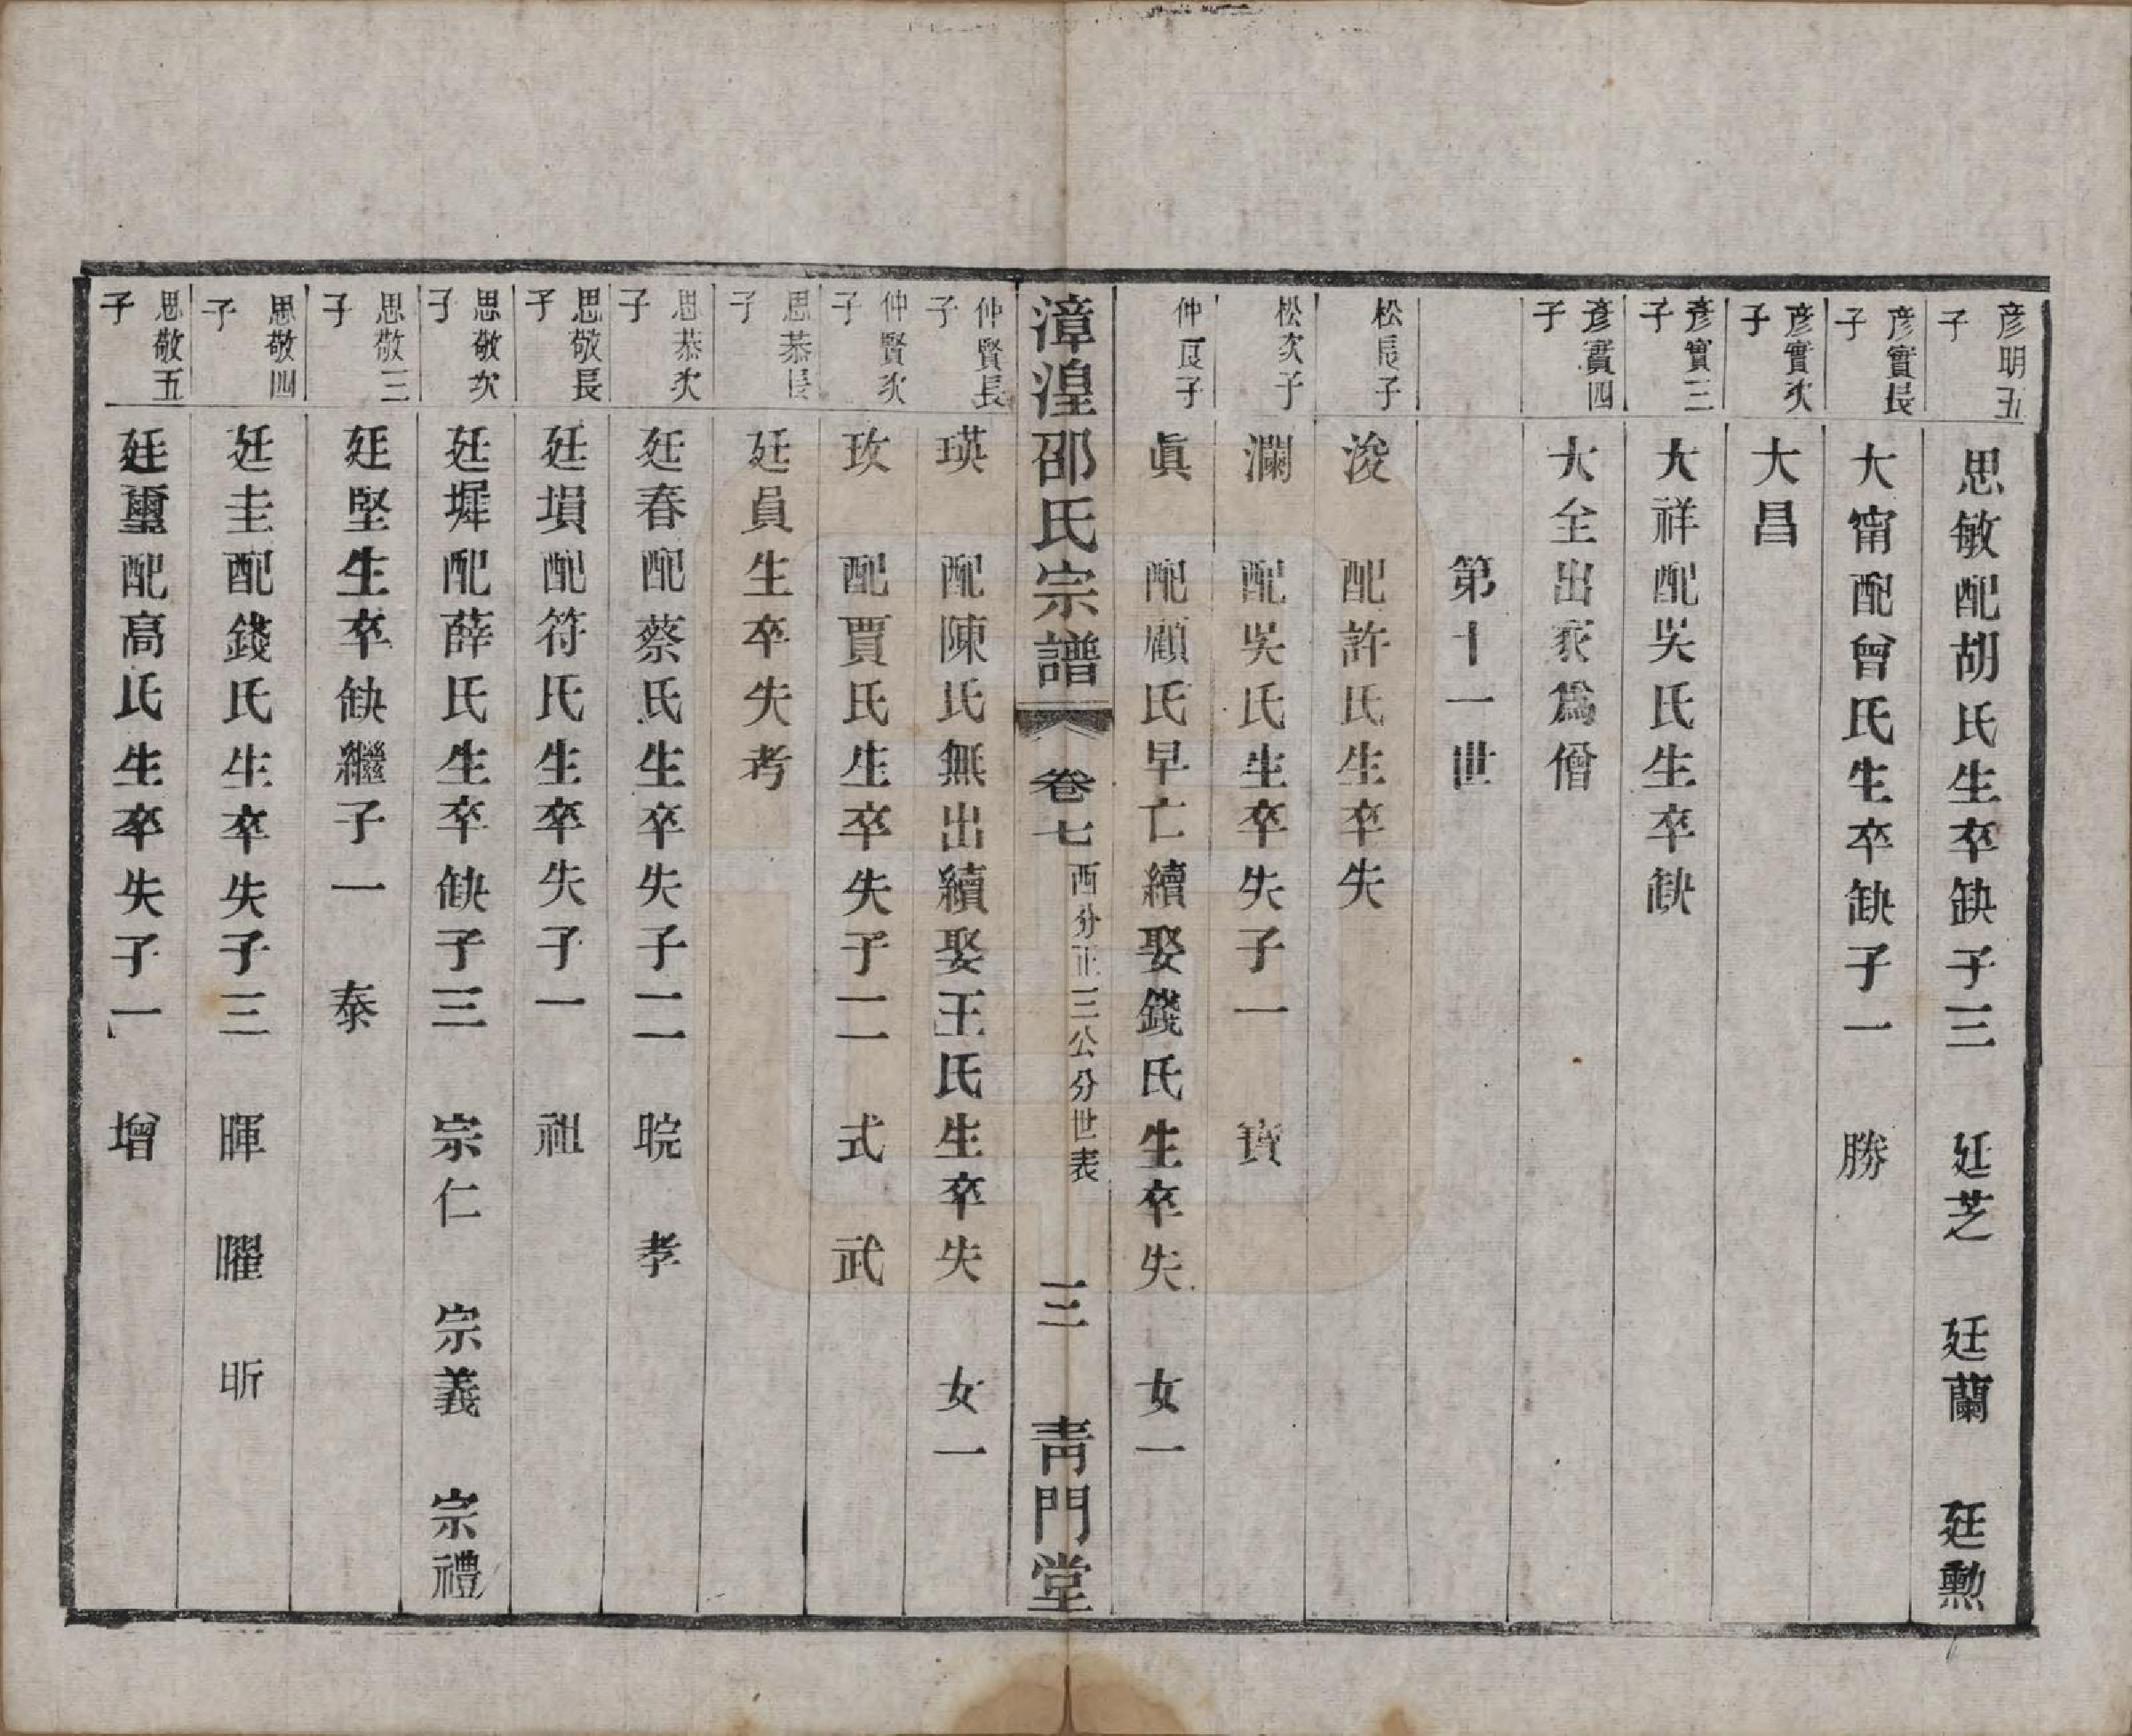 彦明五子　思敏配胡氏生卒缺子三　廷芝　廷蘭　廷勲
彦實長子　大甯配曾氏生卒缺子一　勝
彦實次子　大昌
彦實三子　大祥配吳氏生卒缺
彦實四子　大全出家爲僧
第十一世
松長子　浚　配許氏生卒失
松次子　瀾　配吳氏生卒失子一　寶
仲良子　眞　配顧氏早亡續娶錢氏生卒失　女一
漳湟邵氏宗譜　卷七　西分正三公分世表　三　靑門堂
仲賢長子　瑛　配陳氏無出續娶王氏生卒失　女一
仲賢次子　玫　配賈氏生卒失子二　式　武
思恭長子　廷員生卒失考
思恭次子　廷春配蔡氏生卒失子二　晥　孝
思敬長子　廷塤配符氏生卒失子一　祖
思敬次子　廷墀配薛氏生卒缺子三　宗仁　宗義　宗禮
思敬三子　廷堅生卒缺繼子一　泰
思敬四子　廷圭配錢氏生卒失子三　暉　曜　昕
思敬五子　廷璽配高氏生卒失子一　增